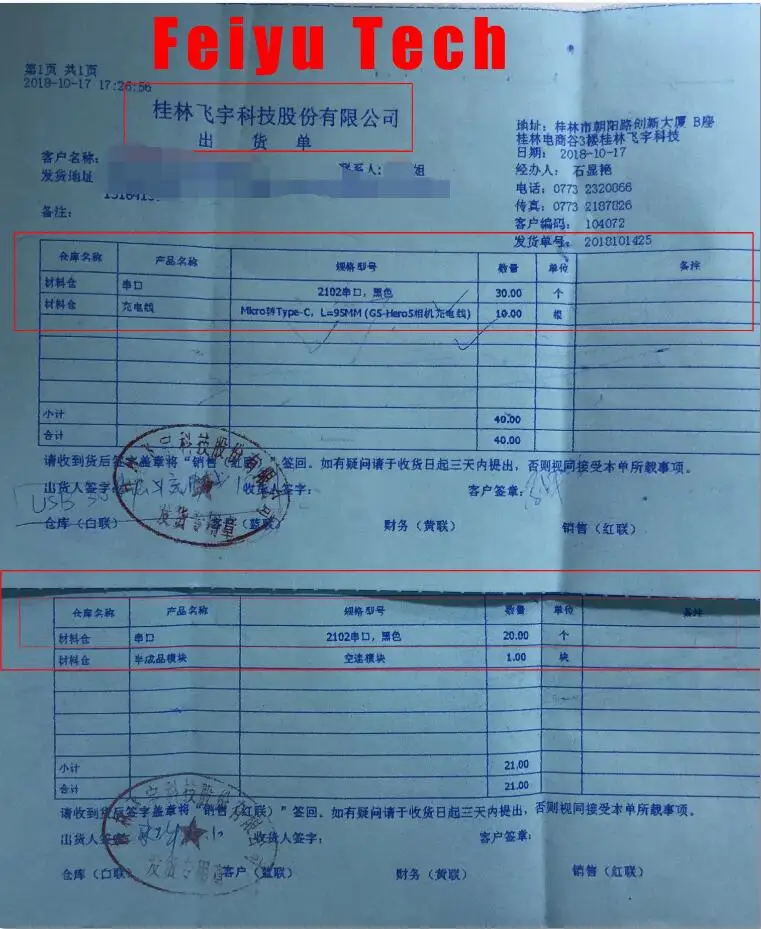 Feiyu Tech
第1页 共1页
2018-10-17 17:26:56
桂林飞宇科技股份有限公司
出 货 单
地址: 桂林市朝阳路创新大厦 B座
桂林电商谷3楼桂林飞宇科技
客户名称:
联系人: 姐
日期: 2018-10-17
发货地址
经办人: 石显艳
电话: 0773 2320866
备注:
传真: 0773 2187826
客户编码: 104072
发货单号: 2018101425
仓库名称 产品名称 规格型号 数量 单位 备注
材料仓 串口 2102串口, 黑色 30.00 个
材料仓 充电线 Micro转Type-C, L=95MM (G5-Hero5相机充电线) 10.00 根
小计 40.00
合计 40.00
请收到货后签字盖章将“销售(红联)”签回。如有疑问请于收货日起三天内提出, 否则视同接受本单所载事项。
出货人签字: 收货人签字: 客户签章:
USB
仓库 (白联) 客户 (蓝联) 财务 (黄联) 销售 (红联)
发货专用章
仓库名称 产品名称 规格型号 数量 单位 备注
材料仓 串口 2102串口, 黑色 20.00 个
材料仓 半成品模块 空速模块 1.00 块
小计 21.00
合计 21.00
请收到货后签字盖章将“销售(红联)”签回。如有疑问请于收货日起三天内提出, 否则视同接受本单所载事项。
出货人签字: 收货人签字: 客户签章:
仓库 (白联) 客户 (蓝联) 财务 (黄联) 销售 (红联)
发货专用章